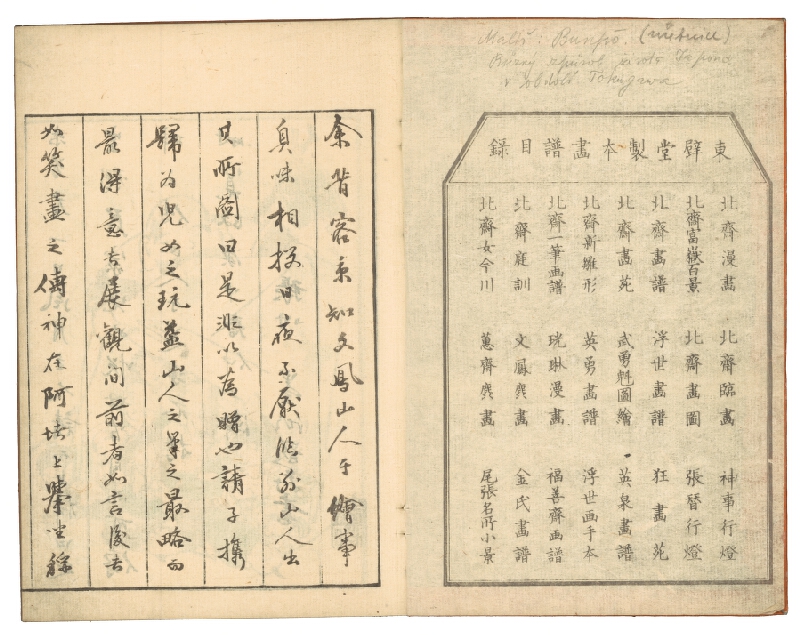 Malíř: Bunpō.
Různý způsob života
v období Tokugawa
東壁堂製本畫譜目録
北齋漫畫 北齋臨畫 神事行燈
北齋富嶽百景 北齋畫圖 張替行燈
北齋畫譜 浮世畫譜 狂畫苑
北齋畫苑 武勇魁圖繪 英泉畫譜
北齋新雛形 英勇畫譜 浮世画手本
北齋一筆画譜 珖琳漫畫 福善齋画譜
北齋庭訓 文鳳麁畫 金氏畫譜
北齋女今川 蕙齋麁畫 尾張名所小景
余昔客京知文鳳山人于繪事
臭味相投日夜不厭臨別山人出
其所啚曰是非以為贈也請子携
歸為兒女之玩蓋山人之筆之最略而
最得意者展觀間前者如言後者
如笑畫之傳神在阿堵上